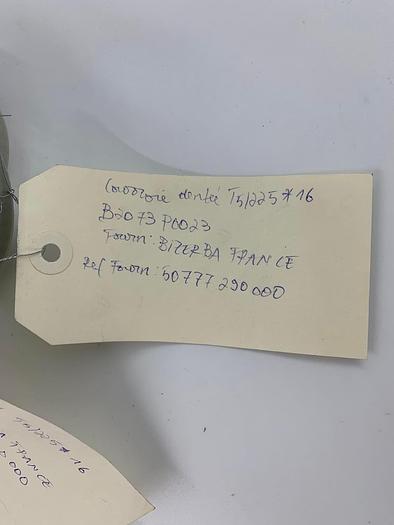 Courroie dentée T5/225*16
B2073P0023
Fourn: BIZERBA FRANCE
Ref Fourn: 50777290000
T5/225*16
FRANCE
000